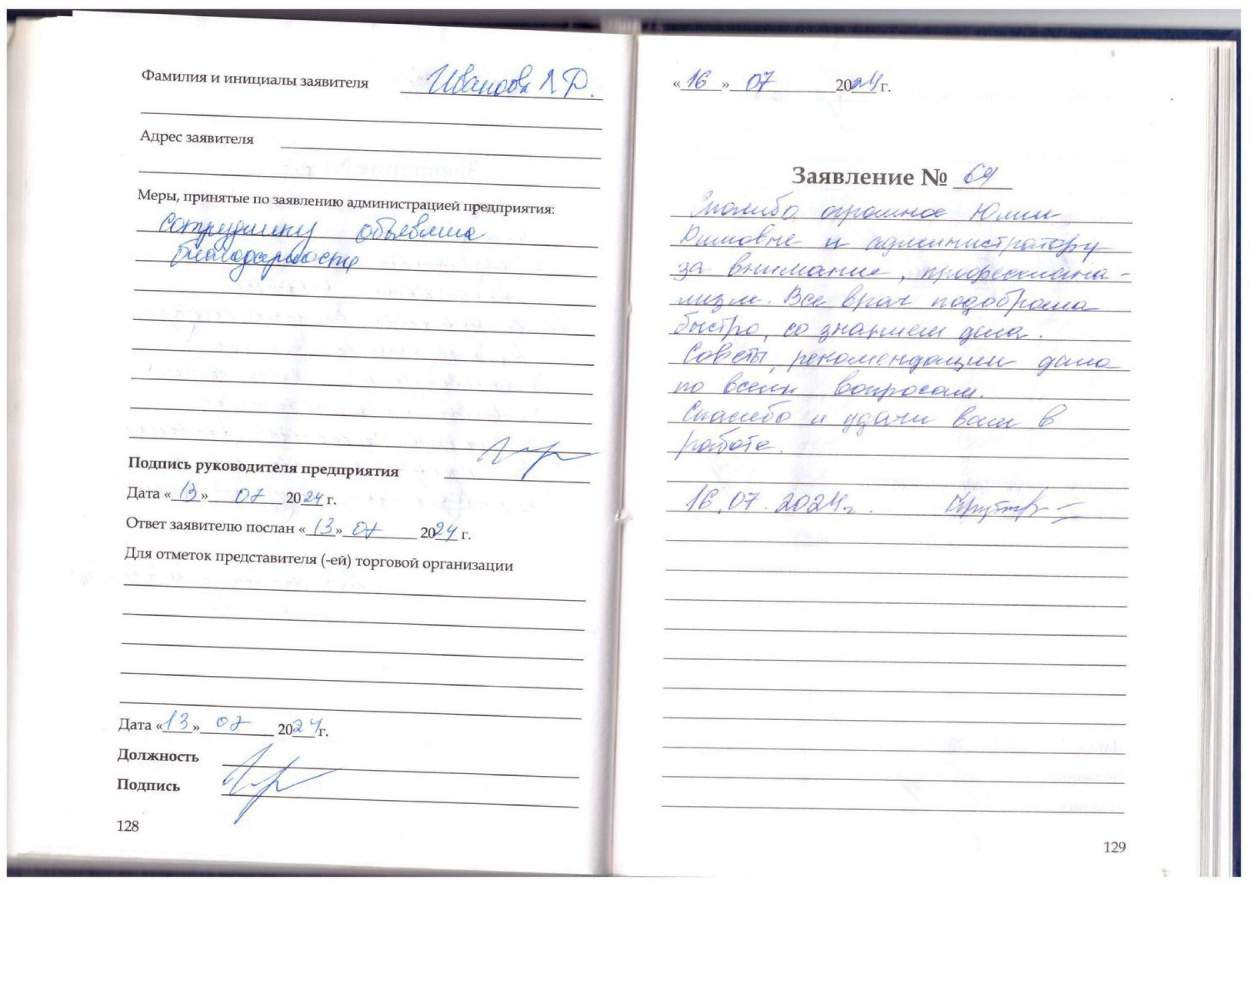 Фамилия и инициалы заявителя Иванова Л Р.
Адрес заявителя
Меры, принятые по заявлению администрацией предприятия:
сотруднику объявлена
благодарность
Подпись руководителя предприятия
Дата «13» 07 2024 г.
Ответ заявителю послан «13» 07 2024 г.
Для отметок представителя (-ей) торговой организации
Дата «13» 07 2024 г.
Должность
Подпись
128
«16» 07 2024 г.
Заявление № 64
Спасибо огромное Юлии
и администратору
за внимание, профессиона-
лизм. Все врач подобрала
быстро, со знанием дела.
Советы, рекомендации дала
по всем вопросам.
Спасибо и удачи вам в
работе.
16.07.2024г.
129